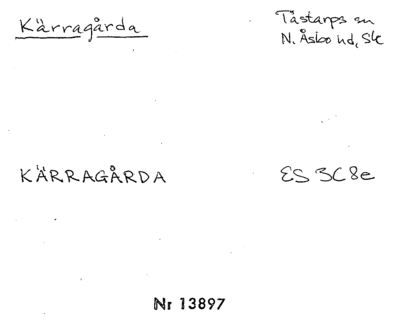 Kärragårda
Tåstarps sn
N. Åsbo hd, Sk
KÄRRAGÅRDA
ES 3C8e
Nr 13897